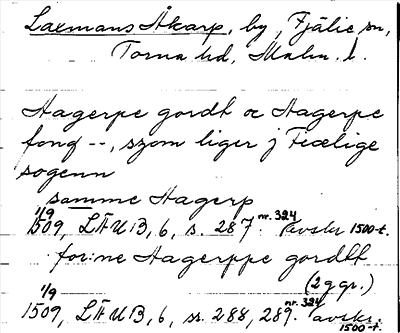 Laxmans Åkarp, by, Fjälie sn,
Torna hd, Malm. l.
Aagerpe gordt oc Aagerpe
fong --, szom liger j Fiælige
sogenn
samme Aagerp
1/9 1509, LÆUB, 6, s. 287. nr. 324 Avskr 1500-t.
for:ne Aagerppe gordtt
(2 ggr.)
1/9 1509, LÆUB, 6, ss. 288, 289. nr. 324 Avskr. 1500-t.